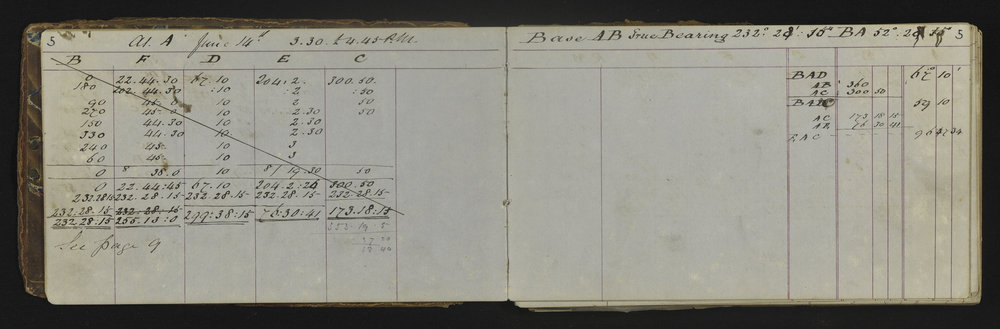 5 At A June 14th 3.30 to 4.45 P.M.
B F D E C
0 22.44.30 67.10 204.2. 300.50.
180 202.44.30 :10 :2 :50
90 45.0 10 2 50
270 45.0 10 2.30 50
150 44.30 10 2.30
330 44.30 10 2.30
240 45. 10 3
60 45. 10 3
0 8 38.0 10 8/19.30 50
0 22.44:45 67.10 204.2:26 300.50
232.28.15 232.28.15 232.28.15 232.28.15 232.28.15
232.28.15 232.28.15 299:38:15 76:30:41 173.18:15
232.28.15 255.13:0
353 19 5
See page 9
Base AB True Bearing 232° 28' 15" BA 52° 28' 15" 5
BAD 67° 10'
AB 360
AC 300 50
BAC 59 10
AC 173 18 15
AE 76 30 41
EAC 96 47 34